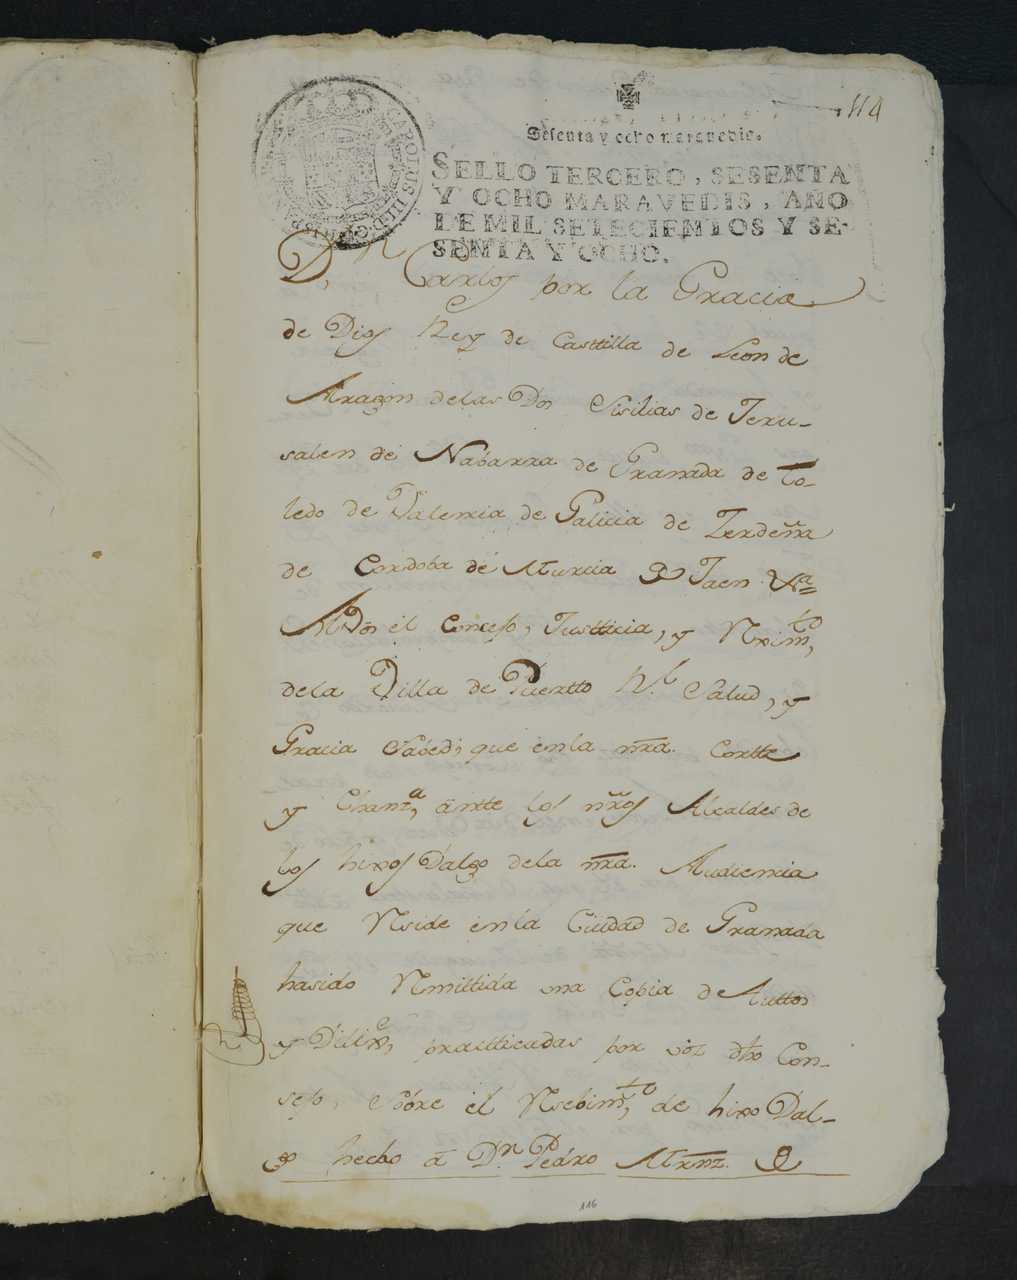 114
Sesenta y ocho maravedis.
SELLO TERCERO, SESENTA
Y OCHO MARAVEDIS, AÑO
DE MIL SETECIENTOS Y SE-
SENTA Y OCHO.
CAROLUS III D G HISPAN
Dn Carlos por la Gracia
de Dios Rey de Casttilla de Leon de
Aragon delas Dos Sisilias de Jeru-
salen de Nabarra de Granada de to-
ledo de Valencia de Galicia de Zerdeña
de Cordoba de Murcia de Jaen &a
A Vos el Conceso, Justticia, y Rximto,
dela Villa de Puertto Rl. Salud, y
Gracia Sabed, que en la nra. Cortte
y Chanza, antte los nros Alcaldes de
los hixos Dalgo dela nra. Audiencia
que Reside en la Ciudad de Granada
hasido Remittida una Copia de Auttos
y Dilixe, practticadas por voz dho Con-
seso, Sobre el Resebimto, de hixo Dal-
go hecho a Dn Pedro Mrnz.
116